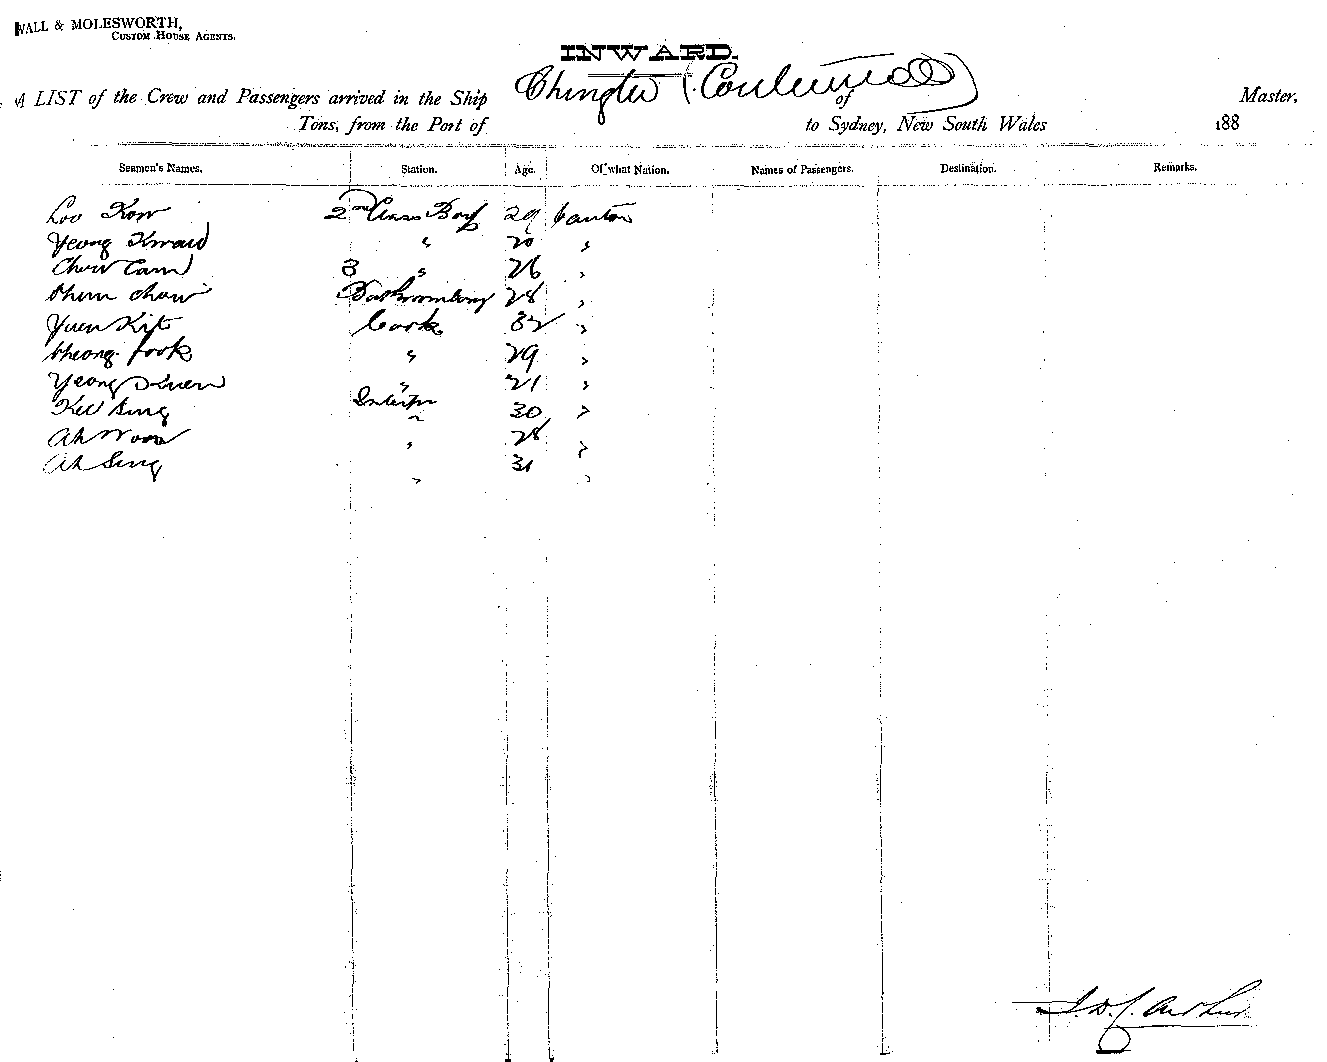 WALL & MOLESWORTH,
CUSTOM HOUSE AGENTS.
INWARD.
A LIST of the Crew and Passengers arrived in the Ship Chingtu (Continued) of Master,
Tons, from the Port of to Sydney, New South Wales 188
Seamen's Names. Station. Age. Of what Nation. Names of Passengers. Destination. Remarks.
Loo Kow 2nd Class Boy 29 Canton
Yeong Kwai 20
Chow Cam 3 " 26 "
Chum Chow Bathroomboy 28 "
Yuen Kit Cook 32 "
Cheong Fook " 29 "
Yeong " 21 "
Kee Sing 30 "
Ah Woon " 28 "
Ah Sing " 31 "